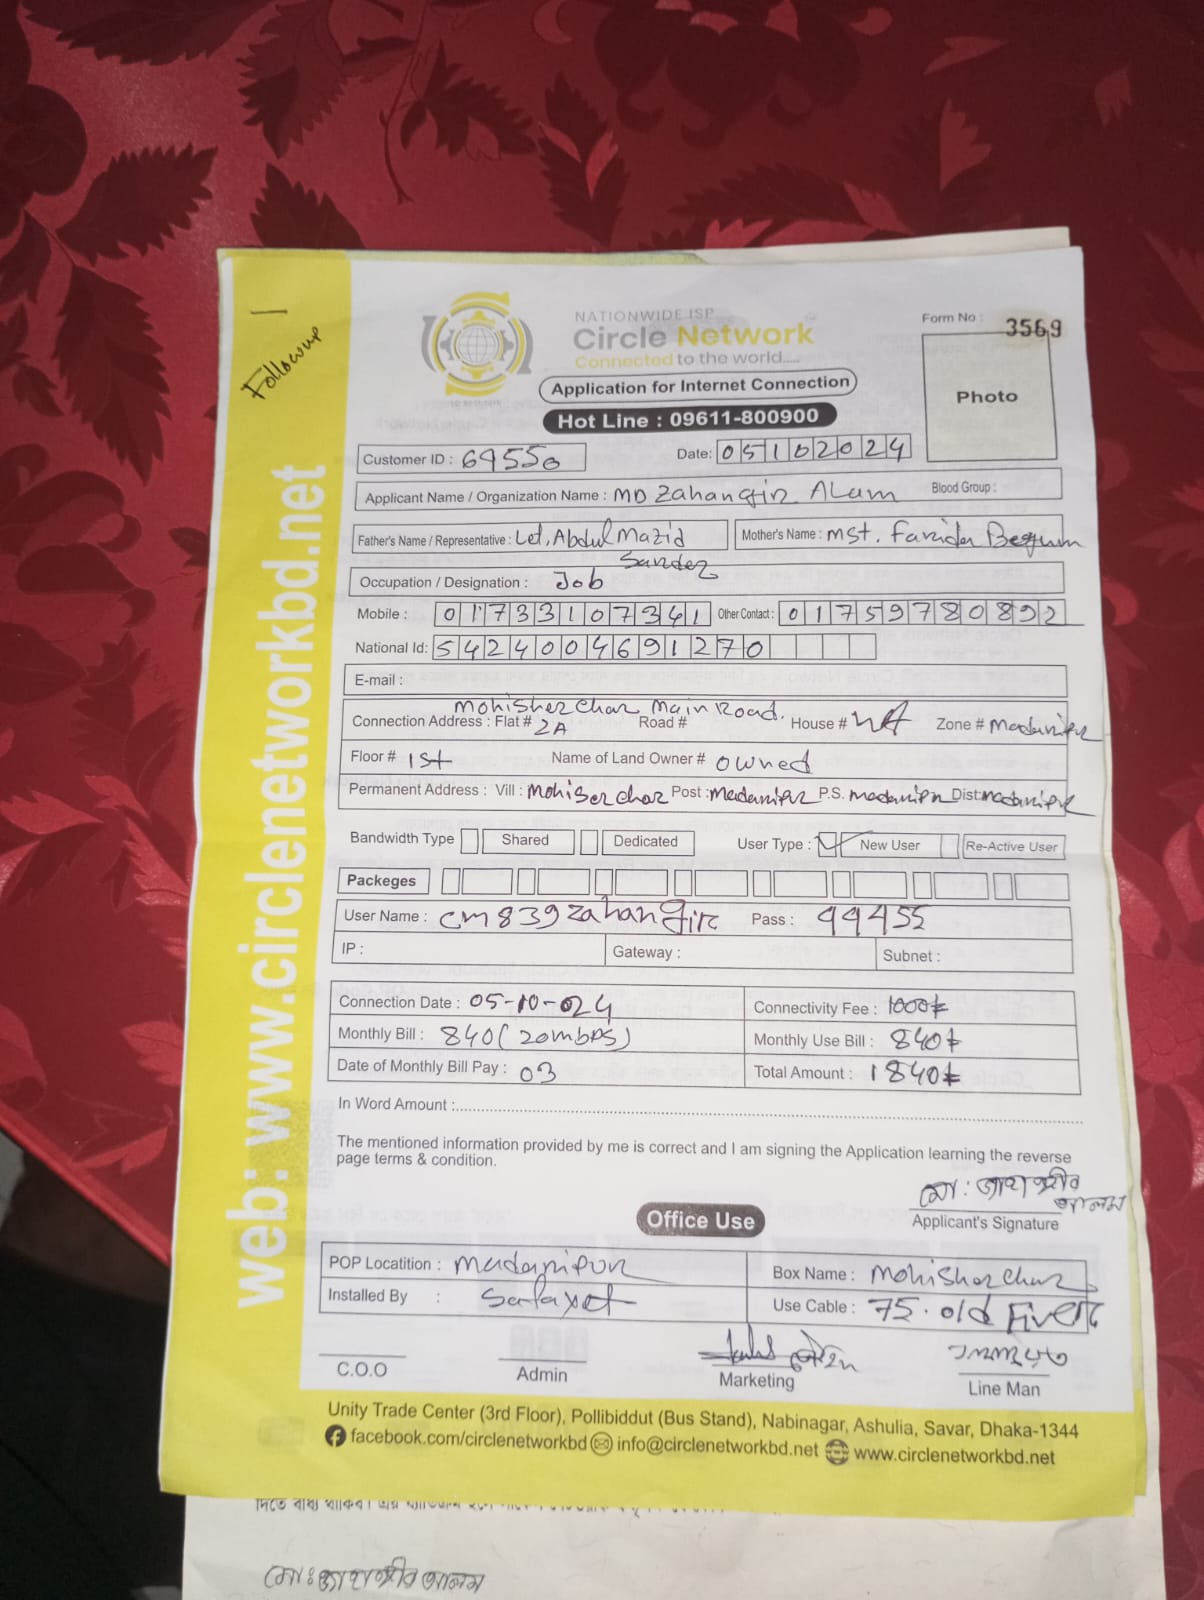 Followup
web: www.circlenetworkbd.net
NATIONWIDE ISP
Circle Network
Connected to the world....
Application for Internet Connection
Hot Line : 09611-800900
Form No : 3569
Photo
Customer ID : 69550
Date: 05102024
Applicant Name / Organization Name : MD Zahangir Alam
Blood Group :
Father's Name / Representative : Let, Abdul Mazid Sarder
Mother's Name : Mst. Farida Begum
Occupation / Designation : Job
Mobile : 01733107341 Other Contact : 01759780892
National Id: 5424004691270
E-mail :
Mohisherchar Main Road.
Connection Address : Flat # 2A Road # House # NA Zone # Madaripur
Floor # 1st Name of Land Owner # owned
Permanent Address : Vill : Mohiserchar Post : Madaripur P.S. Madaripur Dist: Madaripur
Bandwidth Type Shared Dedicated User Type : New User Re-Active User
Packeges
User Name : cm839zahangir Pass : 99455
IP : Gateway : Subnet :
Connection Date : 05-10-024 Connectivity Fee : 1000/-
Monthly Bill : 840 (20mbps) Monthly Use Bill : 840/-
Date of Monthly Bill Pay : 03 Total Amount : 1840/-
In Word Amount :
The mentioned information provided by me is correct and I am signing the Application learning the reverse
page terms & condition.
মো: জাহাঙ্গীর আলম
Applicant's Signature
Office Use
POP Locatition : Madaripur Box Name : Mohisherchar
Installed By : Safayet Use Cable : 75. old Fiver
C.O.O Admin Marketing Line Man
Unity Trade Center (3rd Floor), Pollibiddut (Bus Stand), Nabinagar, Ashulia, Savar, Dhaka-1344
facebook.com/circlenetworkbd info@circlenetworkbd.net www.circlenetworkbd.net
মো: জাহাঙ্গীর আলম